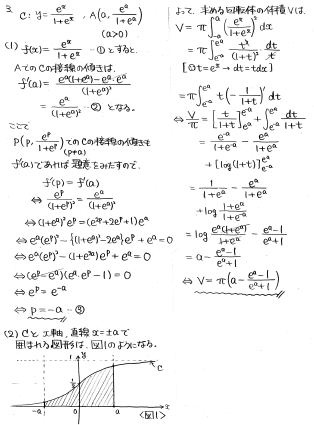 3. C: y = e^x/(1+e^x), A(a, e^a/(1+e^a)) (a>0)
(1) f(x) = e^x/(1+e^x) …① とすると、
AでのCの接線の傾きは、
f'(a) = {e^a(1+e^a) - e^a・e^a}/(1+e^a)^2
= e^a/(1+e^a)^2 …② となる。
ここで
P(p, e^p/(1+e^p)) でのCの接線の傾きも
(p≠a)
f'(a)であれば題意をみたすので、
f'(p) = f'(a)
⇔ e^p/(1+e^p)^2 = e^a/(1+e^a)^2
⇔ (1+e^a)^2 e^p = (e^{2p}+2e^p+1)e^a
⇔ e^a(e^p)^2 - {(1+e^a)^2 - 2e^a}e^p + e^a = 0
⇔ e^a(e^p)^2 - (1+e^{2a})e^p + e^a = 0
⇔ (e^p - e^a)(e^a・e^p - 1) = 0
⇔ e^p = e^{-a}
⇔ p = -a …③
(2) Cとx軸, 直線x=±aで
囲まれる図形は、図1のようになる。
y
1
C
1/2
-a 0 a x
<図1>
よって、求める回転体の体積Vは、
V = π∫_{-a}^{a} (e^x/(1+e^x))^2 dx
= π∫_{e^{-a}}^{e^a} t^2/(1+t)^2 ・ dt/t
[∵ t=e^x → dt=tdx]
= π∫_{e^{-a}}^{e^a} t(-1/(1+t))' dt
⇔ V/π = -[t/(1+t)]_{e^{-a}}^{e^a} + ∫_{e^{-a}}^{e^a} dt/(1+t)
= e^{-a}/(1+e^{-a}) - e^a/(1+e^a)
+ [log(1+t)]_{e^{-a}}^{e^a}
= 1/(1+e^a) - e^a/(1+e^a)
+ log (1+e^a)/(1+e^{-a})
= log e^a(1+e^a)/(1+e^a) - (e^a-1)/(e^a+1)
= a - (e^a-1)/(e^a+1)
⇔ V = π(a - (e^a-1)/(e^a+1))